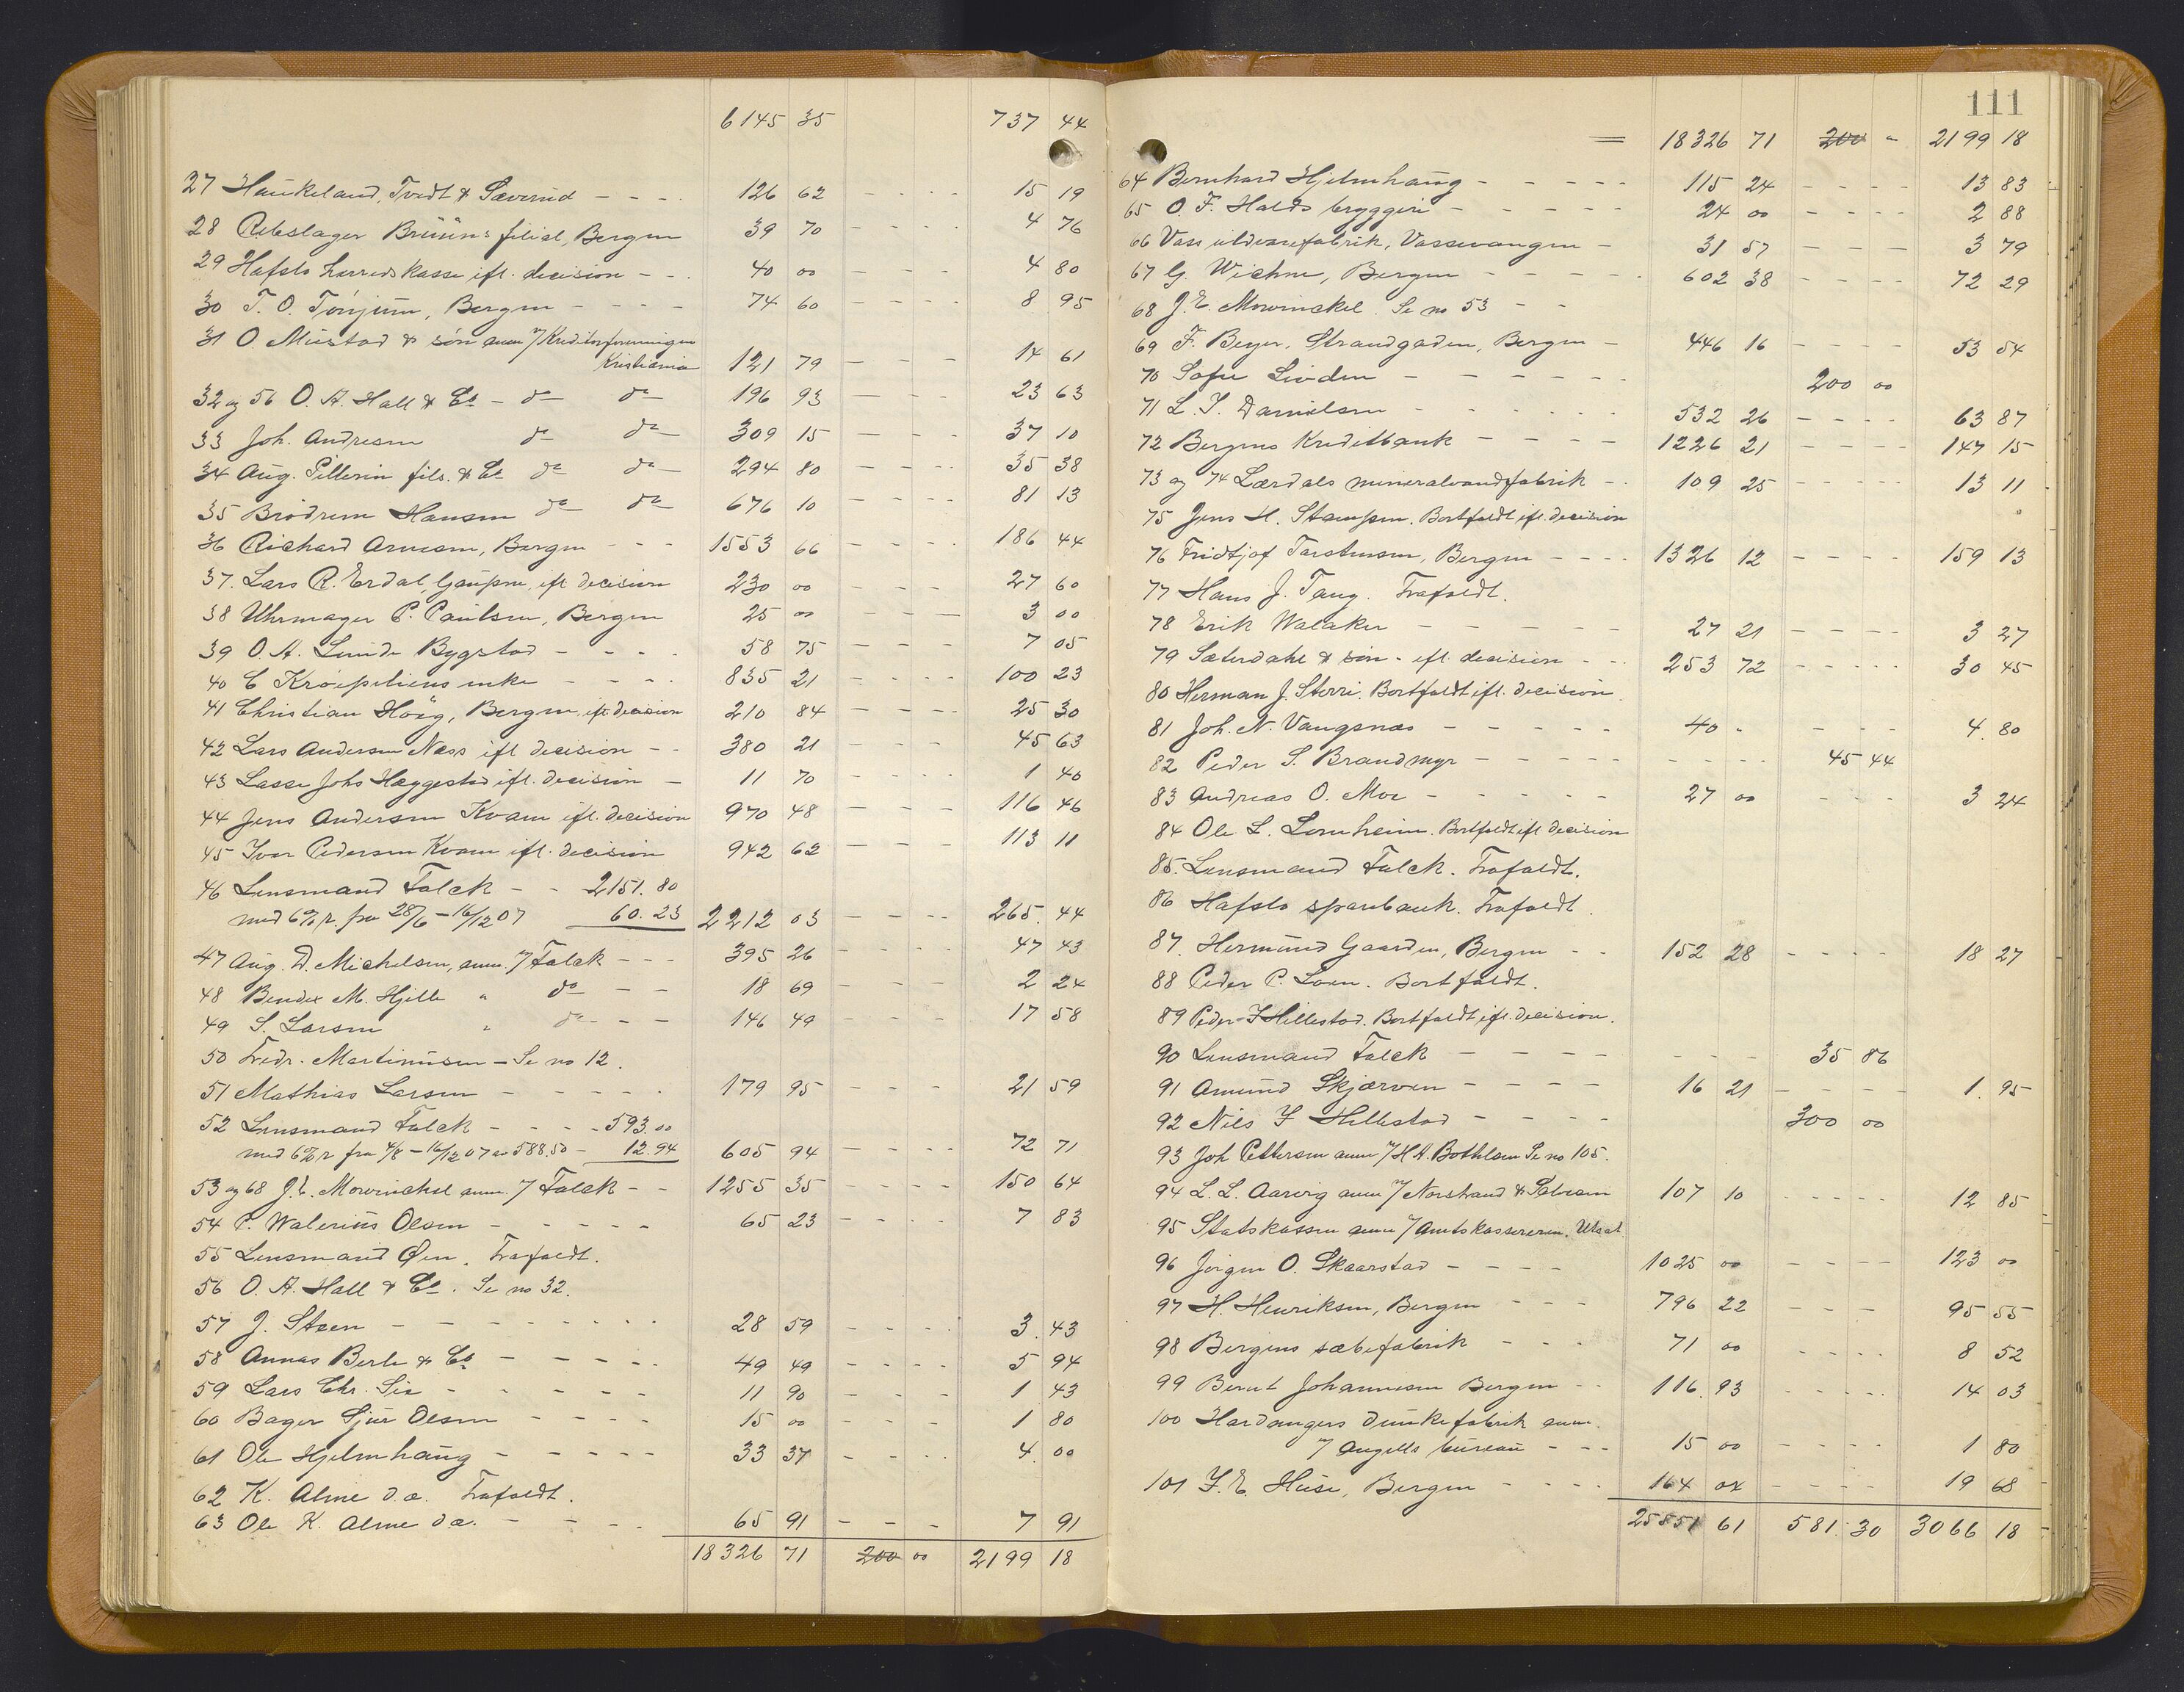 6145 35 737 44
27 Haukeland, Tvedt & Sæverud - - - 126 62 - - - - 15 19
28 Rebslager Brüüns filial, Bergen 39 70 - - - - 4 76
29 Hafslo herredskasse ifl. decision - - - 40 00 - - - - 4 80
30 T. O. Tönjum, Bergen - - - - 74 60 - - - - 8 95
31 O. Mustad & søn anm. v/ Kreditorforeningen
Kristiania 121 79 - - - - 14 61
32 og 56 O. A. Hall & Co - do do 196 93 - - - - 23 63
33 Joh. Andresen do do 309 15 - - - - 37 10
34 Aug. Pellerin fils. & Co do do 294 80 - - - - 35 38
35 Brödrene Hansen do do 676 10 - - - - 81 13
36 Richard Arnesen, Bergen - - 1553 66 - - - - 186 44
37. Lars R. Erdal, Gaupne, ifl decision 230 00 - - - 27 60
38 Uhrmager P. Paulsen, Bergen 25 00 - - - 3 00
39 O. A. Lunde Bygstad - - - - 58 75 - - - 7 05
40 C Kroepeliens enke - - - - 835 21 - - - - 100 23
41 Christian Höög, Bergen, ifl. decision 210 84 - - - - 25 30
42 Lars Andersen Næss ifl decision - - 380 21 - - - 45 63
43 Lasse Johs Hæggestad ifl. decision - 11 70 - - - - 1 40
44 Jens Andersen Kvam ifl. decision 970 48 - - - 116 46
45 Iver Pedersen Kvam ifl. decision 942 62 - - - 113 11
46 Lensmand Falck - - 2151. 80
med 6% r. fra 28/6 - 16/12 07 60. 23 2212 03 - - - - 265. 44
47 Aug. D. Michelsen, anm. v/ Falck - - - 395 26 - - - - 47 43
48 Bendix M. Hjelle " do - - 18 69 - - - 2 24
49 S. Larsen " do - - - 146 49 - - - 17 58
50 Fredr. Martinussen - Se no 12.
51 Mathias Larsen - - - - - 179 95 - - - 21 59
52 Lensmand Falck - - - - 593. 00
med 6% r fra 4/8 - 16/12 07 av 588.50 - 12.94 605 94 - - - - 72 71
53 og 68 J. E. Mowinckel anm. v/ Falck - - 1255 35 - - - - 150 64
54 P. Walerius Olsen - - - - - 65 23 - - - - 7 83
55 Lensmand Øen. Frafaldt.
56 O. A. Hall & Co. Se no 32.
57 J. Steen - - - - - - - - 28 59 - - - - 3. 43
58 Annas Berle & Co - - - - - 49 49 - - - - 5 94
59 Lars Chr. Lie - - - - - 11 90 - - - 1 43
60 Bager Sjur Olsen - - - - 15 00 - - - 1 80
61 Ole Hjelmhaug - - - - - 33 37 - - - - 4. 00
62 K. Alme d.æ. Frafaldt.
63 Ole K. Alme d.æ. - - - - 65 91 - - - 7 91
18326 71 200 00 2199 18
111
= 18326 71 200 - 2199 18
64 Bernhard Hjelmhaug - - - - - 115 24 - - - - 13 83
65 O. F. Halds bryggeri - - - - - 24 00 - - - - 2 88
66 Voss uldvarefabrik, Vossevangen - 31 57 - - - 3 79
67 G. Wichne, Bergen - - - - - 602 38 - - - - 72 29
68 J. E. Mowinckel. Se no 53 - -
69 F. Beyer, Strandgaden, Bergen - 446 16 - - - - 53 54
70 Sofie Linden - - - - - - 200 00
71 L. J. Danielsen - - - - - - 532 26 - - - - 63 87
72 Bergens Kreditbank - - - - 1226 21 - - - - 147 15
73 og 74 Lærdals mineralvandfabrik - - 109 25 - - - - - 13 11
75 Jens H. Stampen. Bortfaldt ifl. decision
76 Fridtjof Torstensen, Bergen - - - - 1326 12 - - - - 159 13
77 Hans J. Tang. Frafaldt.
78 Erik Walaker - - - - - 27 21 - - - - 3 27
79 Sæterdahl & søn - ifl. decision - - - 253 72 - - - - - 30 45
80 Herman J. Sterri. Bortfaldt ifl. decision
81 Joh. N. Vangsnæs - - - - - 40 - - - - - 4. 80
82 Peder S. Brandmyr - - - - - - - - - 45 44
83 Andreas O. Moe - - - - - 27 00 - - - 3 24
84 Ole L. Lomheim. Bortfaldt ifl decision
85. Lensmand Falck. Frafaldt.
86 Hafslo sparebank. Frafaldt.
87. Hermund Gaarden, Bergen - - 152 28 - - - - 18 27
88 Peder P. Loen. Bortfaldt.
89 Peder I Hillestad. Bortfaldt ifl. decision.
90 Lensmand Falck - - - - - - - 35 86
91 Amund Skjærven - - - - 16 21 - - - - - 1. 95
92 Nils I Hillestad - - - - 300 00
93 Joh Pettersen anm v/ H.A. Bothlom Se no 105.
94 L. L. Aarvig anm v/ Norstrand & 107 10 - - - - - 12 85
95 Statskassen anm v/ Amtskassereren. Utsat
96 Jörgen O. Skaarstad - - - - 1025 00 - - - - 123 00
97 H. Henriksen, Bergen - - - 796 22 - - - 95 55
98 Bergens sæbefabrik - - - - 71 00 - - - - 8 52
99 Bernt Johannesen Bergen - - 116. 93 - - - - - 14 03
100 Hardangers dunkefabrik anm.
v/ Angells bureau - - - 15 00 - - - - 1 80
101 J. E. Huse, Bergen - - - - 164 04 - - - - 19 68
25851 61 581. 30 3066 18